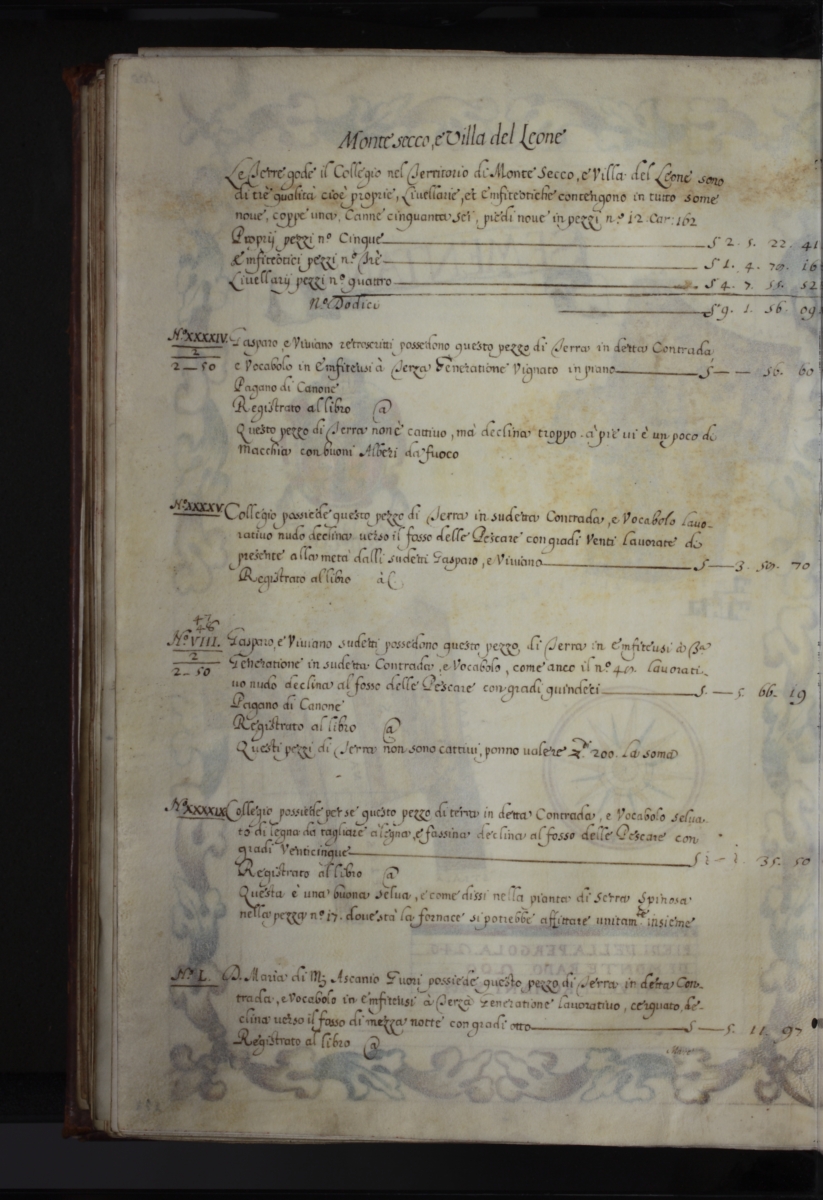 Monte secco, e Villa del Leone
Le Terre gode il Collegio nel Territorio di Monte Secco, e Villa del Leone sono
di trè qualità cioè proprie, Livellarie, et Emfiteotiche contengono in tutto some
nove, coppe una, Canne cinquanta sei, piedi nove in pezzi n.º 12. Car: 162
Proprij pezzi nº Cinque S 2. 5. 22. 41
Emfiteotici pezzi n.º Trè S 1. 4. 79. 16
Livellarij pezzi nº quattro S 4. 7. 55. 52
Nº Dodici S 9. 1. 56. 09
Nº XXXXIV. Gasparo, e Viviano retroscritti possedono questo pezzo di Terra in detta Contrada
2
2 — 50 e Vocabolo in Emfiteusi à Terza Generatione Vignato in piano S — — 56. 60
Pagano di Canone
Registrato al libro @
Questo pezzo di Terra non è cattivo, mà declina troppo. à piè vi è un poco di
Macchia con buoni Alberi da fuoco
Nº XXXXV. Collegio possiede questo pezzo di Terra in sudetta Contrada, e Vocabolo lavo-
rativo nudo declina verso il fosso delle Pescare con gradi Venti lavorate di
presente alla metà dalli sudetti Gasparo, e Viviano S — 3. 50. 70
Registrato al libro à C
47
48
Nº VIII. Gasparo, e Viviano sudetti possedono questo pezzo, di Terra in Emfiteusi à 3ª
2
2 — 50 Generatione in sudetta Contrada, e Vocabolo, come anco il n.º lavorati-
vo nudo declina al fosso delle Pescare con gradi quindeci S. — 5. 66. 19
Pagano di Canone
Registrato al libro @
Questi pezzi di Terra non sono cattivi, ponno valere 200. la soma
Nº XXXXIX Collegio possiede per se questo pezzo di terra in detta Contrada, e Vocabolo selva-
to di legna da tagliare a legna, e fassina declina al fosso delle Pescare con
gradi Venticinque S 35. 50
Registrato al libro @
Questa è una buona selva, e come dissi nella pianta di Serra Spinosa
nella pezza nº 17. dove stà la fornace si potrebbe affittare unitamte insieme
Nº L. D. Maria di Mg Ascanio Fuori possiede questo pezzo di Terra in detta Con-
trada, e Vocabolo in Emfiteusi à Terza Generatione lavorativo, cerquato, de-
clina verso il fosso di mezza notte con gradi otto S — 5. 11. 97
Registrato al libro @